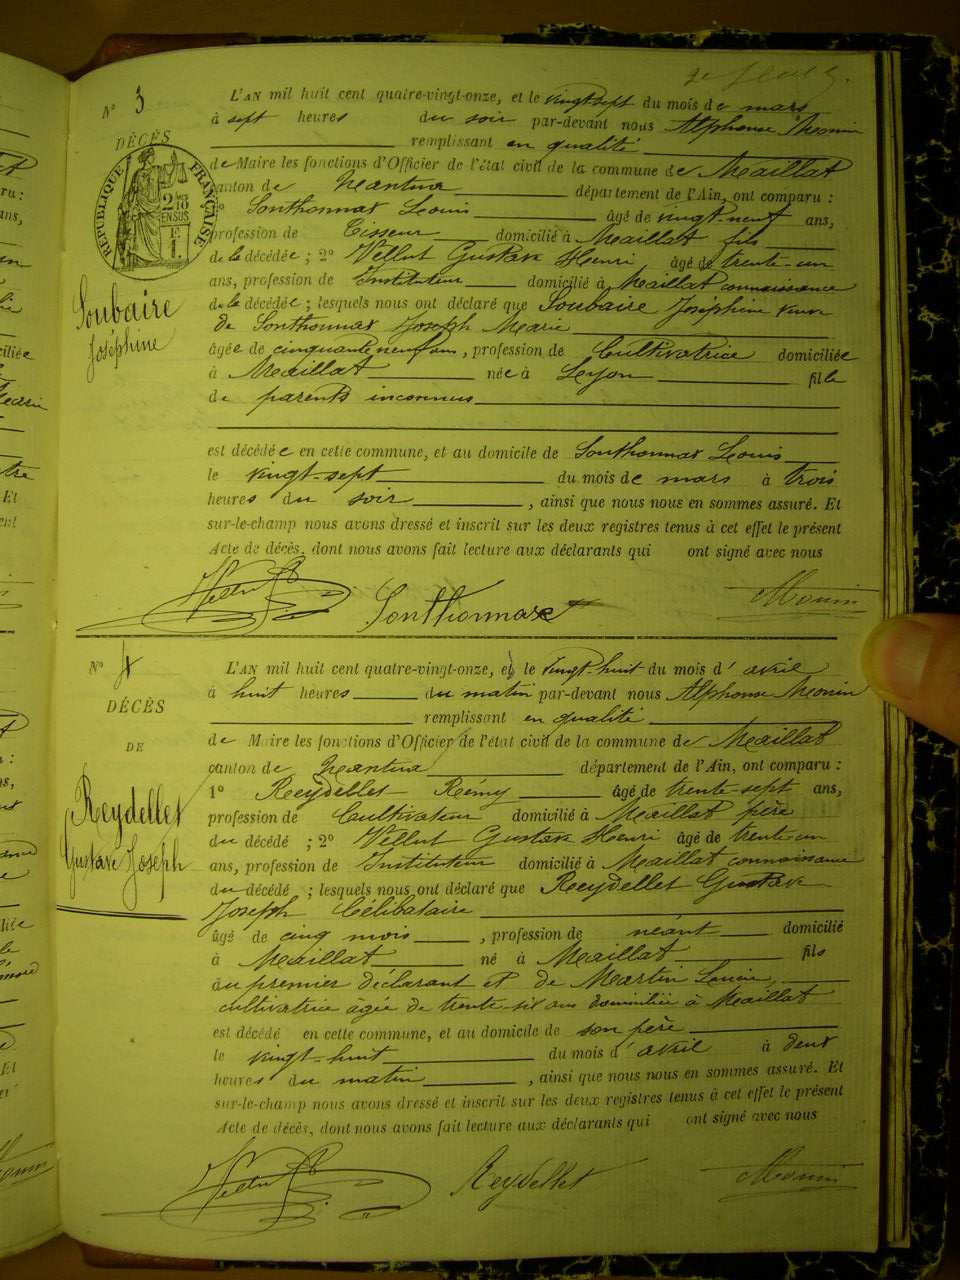 2e feuille.
N° 3
DÉCÈS
RÉPUBLIQUE FRANÇAISE
2 10
EN SUS
E
1.
Soubaire
Joséphine
L'AN mil huit cent quatre-vingt-onze, et le vingt sept du mois de mars
à sept heures du soir par-devant nous Alphonse Monin
remplissant en qualité
de Maire les fonctions d'Officier de l'état civil de la commune de Maillat
canton de Nantua département de l'Ain, ont comparu :
1° Sonthonnax Louis âgé de vingt-neuf ans,
profession de Tisseur domicilié à Maillat fils
de la décédée ; 2° Vellut Gustave Henri âgé de trente-un
ans, profession de Instituteur domicilié à Maillat connaissance
de la décédée ; lesquels nous ont déclaré que Soubaire Joséphine veuve
de Sonthonnax Joseph Marie
âgée de cinquante neuf ans, profession de Cultivatrice domiciliée
à Maillat née à Lyon fille
de parents inconnus
est décédée en cette commune, et au domicile de Sonthonnax Louis
le vingt-sept du mois de mars à trois
heures du soir , ainsi que nous nous en sommes assuré. Et
sur-le-champ nous avons dressé et inscrit sur les deux registres tenus à cet effet le présent
Acte de décès, dont nous avons fait lecture aux déclarants qui ont signé avec nous
Vellut Sonthonnax Monin
N° 4
DÉCÈS
DE
Reydellet
Gustave Joseph
L'AN mil huit cent quatre-vingt-onze, et le vingt-huit du mois d' avril
à huit heures du matin par-devant nous Alphonse Monin
remplissant en qualité
de Maire les fonctions d'Officier de l'état civil de la commune de Maillat
canton de Nantua département de l'Ain, ont comparu :
1° Reydellet Rémy âgé de trente-sept ans,
profession de Cultivateur domicilié à Maillat père
du décédé ; 2° Vellut Gustave Henri âgé de trente-un
ans, profession de Instituteur domicilié à Maillat connaissance
du décédé ; lesquels nous ont déclaré que Reydellet Gustave
Joseph Célibataire
âgé de cinq mois , profession de néant domicilié
à Maillat né à Maillat fils
au premier déclarant et de Martin Louise,
cultivatrice âgée de trente-six ans domiciliée à Maillat
est décédé en cette commune, et au domicile de son père
le vingt-huit du mois d' avril à deux
heures du matin , ainsi que nous nous en sommes assuré. Et
sur-le-champ nous avons dressé et inscrit sur les deux registres tenus à cet effet le présent
Acte de décès, dont nous avons fait lecture aux déclarants qui ont signé avec nous
Vellut Reydellet Monin